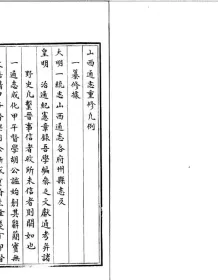 山西通志重修凡例
一纂修據
大明一統志山西通志各府州縣志及
皇明 治通紀憲章錄吾學編參之文獻通考并諸
野史凡繫晉事信者收所未信者則闕如也
一通志成化甲午督學胡公謐始創其辭簡實無